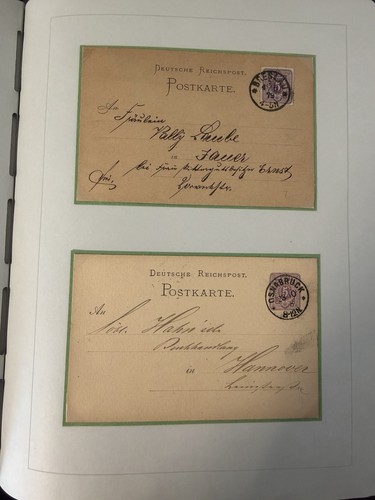 DEUTSCHE REICHSPOST.
POSTKARTE.
BRESLAU
79
An
Fräulein
Vally Laube
in Jauer
bei
Ernst
frei.
DEUTSCHE REICHSPOST.
POSTKARTE.
OSNABRÜCK
8-12N
An
Hahn'sche
Buchhandlung
in Hannover